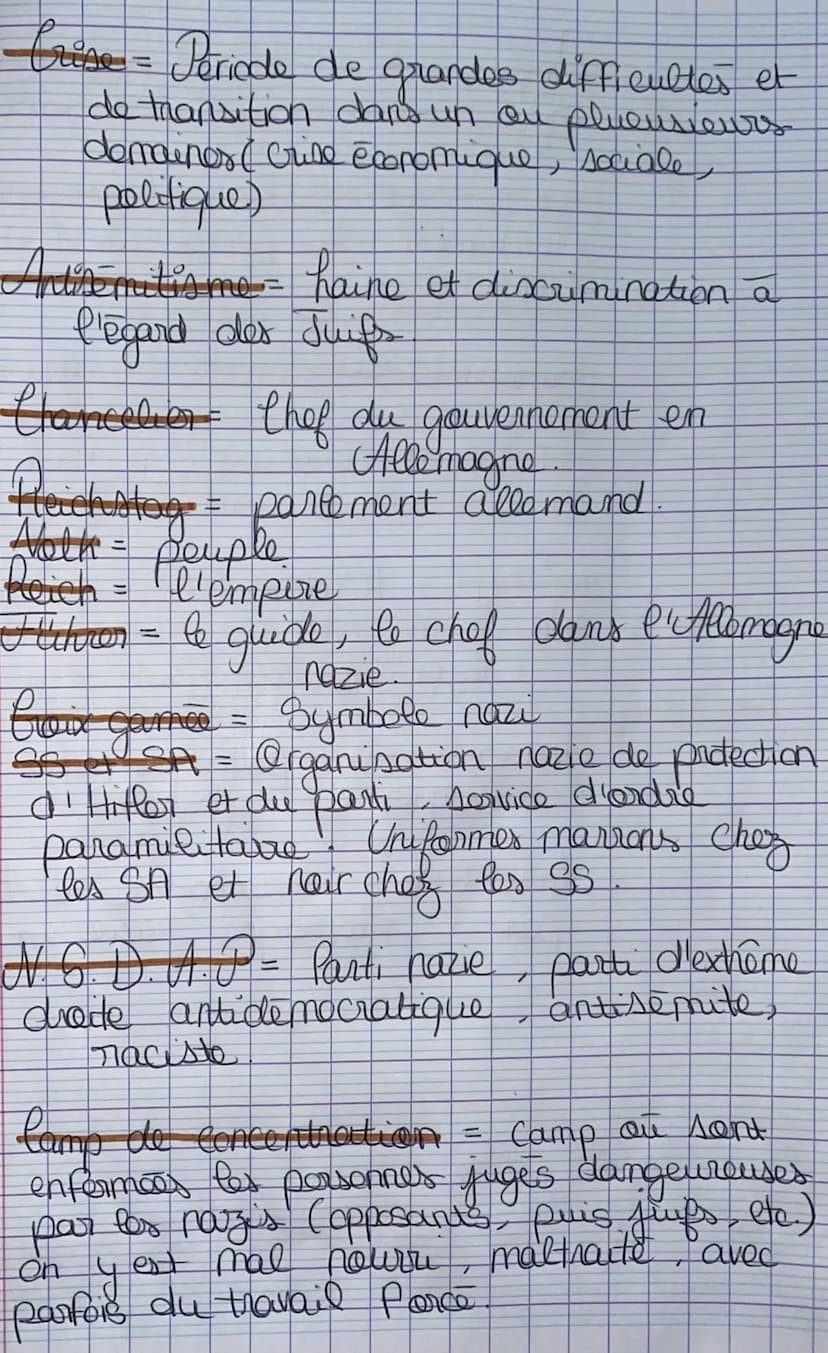 Crise = Période de grandes difficultés et
de transition dans un ou pluusieurs
domaines (Crise économique, sociale,
politique)
Antisémitisme = haine et discrimination à
l'égard des Juifs
Chancelier = Chef du gouvernement en
Allemagne.
Reichstag = parlement allemand.
Volk = peuple
Reich = l'empire
Führer = le guide, le chef dans l'Allemagne
nazie.
Croix gamée = Symbole nazi
SS et SA = Organisation nazie de protection
d'Hitler et du parti, service d'ordre
paramilitaire. Uniformes marrons chez
les SA et noir chez les SS.
N.S.D.A.P = Parti nazie, parti d'extrême
droite antidémocratique, antisémite,
raciste.
Camp de concentration = Camp où sont
enfermées les personnes jugés dangeureuses
par les nazis (opposants, puis juifs, etc.)
on y est mal nourri, maltraité, avec
parfois du travail forcé.